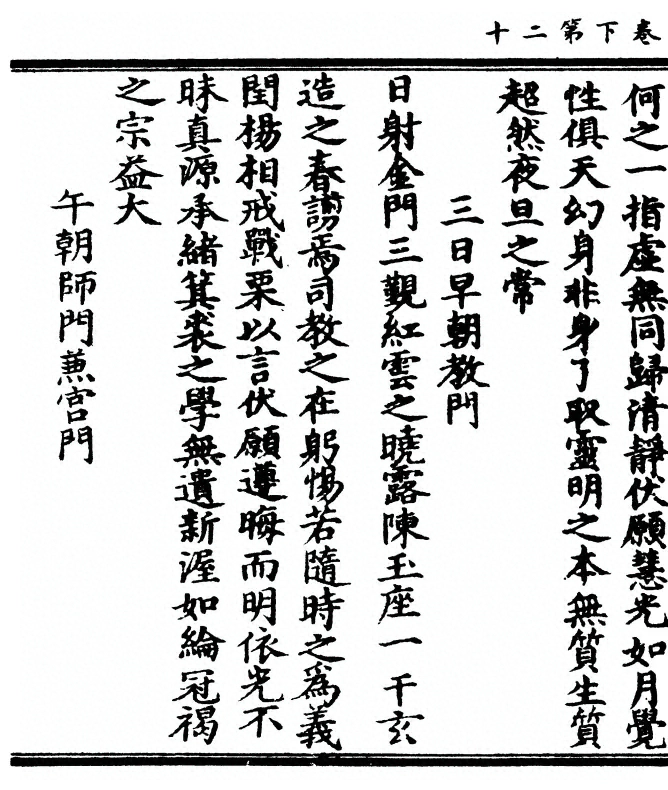 卷下第二十
何之一指虛無同歸清靜伏願慧光如月覺
性俱天幻身非身了取靈明之本無質生質
超然夜旦之常
三日早朝教門
日射金門三觀紅雲之曉露陳玉座一干玄
造之春謭焉司教之在躬惕若隨時之為義
閏楊相戒戰栗以言伏願遵晦而明依光不
昧真源承緒箕裘之學無遺新渥如綸冠褐
之宗益大
午朝師門兼宮門